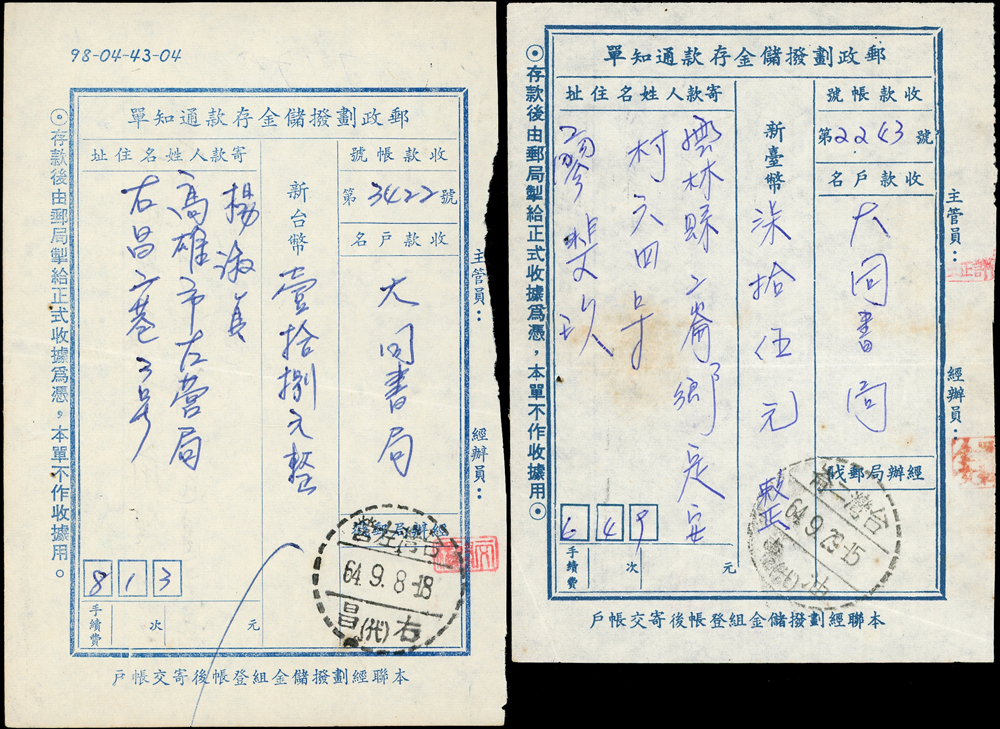 98-04-43-04
郵政劃撥儲金存款通知單
收款帳號
第3422號
收款戶名
大同書局
經辦局郵戳
新台幣
壹拾捌元整
寄款人姓名住址
楊淑貞
高雄市左營局
右昌二巷3號
813
手續費 次 元
台灣左營
64.9.8-18
右昌(代)
主管員：
經辦員：
⊙存款後由郵局掣給正式收據爲憑，本單不作收據用。
本聯經劃撥儲金組登帳後寄交帳戶
郵政劃撥儲金存款通知單
收款帳號
第2243號
收款戶名
大同書局
經辦局郵戳
新臺幣
柒拾伍元整
寄款人姓名住址
雲林縣二崙鄉定安
村六四號
廖
649
手續費 次 元
台灣二
64.9.29-15
主管員：
經辦員：
⊙存款後由郵局掣給正式收據爲憑，本單不作收據用⊙
本聯經劃撥儲金組登帳後寄交帳戶